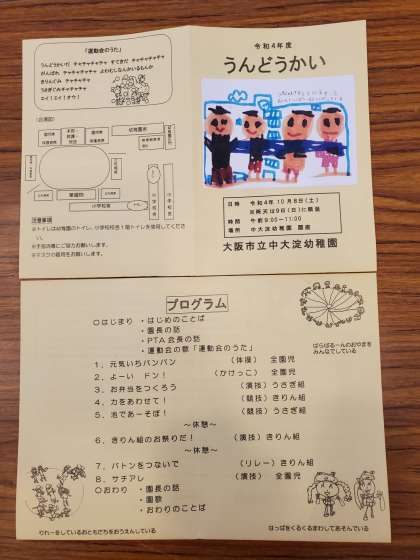 「運動会のうた」
うんどうかいだ チャチャチャチャ すてきだ チャチャチャチャ
がんばれ チャチャチャチャ よわむしなんかいるもんか
きりんぐみ チャチャチャチャ
うさぎぐみチャチャチャチャ
エイ！エイ！オウ！
小学校舎
注意事項
※トイレは幼稚園のトイレ、小学校校舎1階トイレを使用してください。
※手指消毒にご協力お願いします。
※マスクの着用をお願いします。
令和4年度
うんどうかい
日時 令和4年10月8日(土)
※雨天は9日(日)に順延
時間 午前9:00～11:00
場所 中大淀幼稚園 園庭
大阪市立中大淀幼稚園
プログラム
〇はじまり ・はじめのことば
・園長の話
・PTA会長の話
・運動会の歌「運動会のうた」
1．元気いちバンバン (体操) 全園児
2．よーい ドン！ (かけっこ) 全園児
3．お弁当をつくろう (演技) うさぎ組
4．力をあわせて！ (競技) きりん組
5．池であーそぼ！ (競技) うさぎ組
～休憩～
6．きりん組のお祭りだ！ (演技) きりん組
～休憩～
7．バトンをつないで (リレー) きりん組
8．サチアレ (演技) 全園児
〇おわり ・園長の話
・園歌
・おわりのことば
ぱらばるーんのおやまを
みんなでしている
りれーをしているおともだちをおうえんしている
はっぱをくるくるまわしてあそんでいる